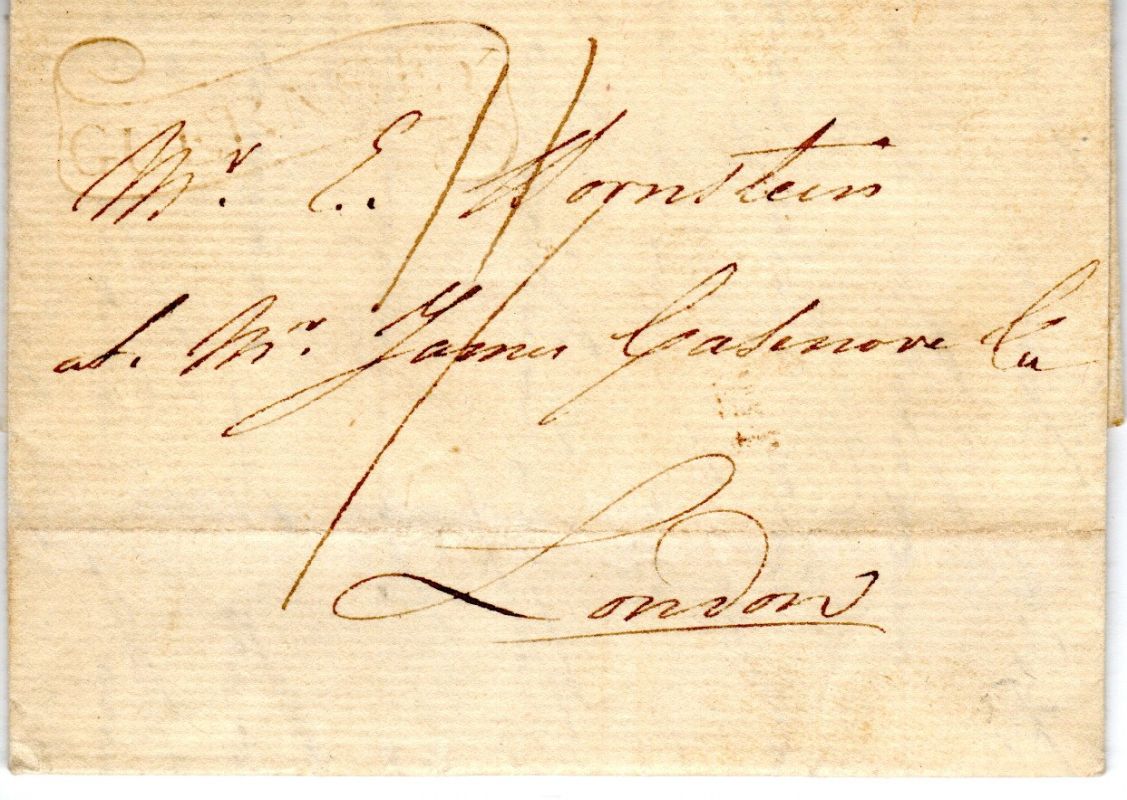 Mr. E. Hornstein
at. Mr. James Casenove Cu
London